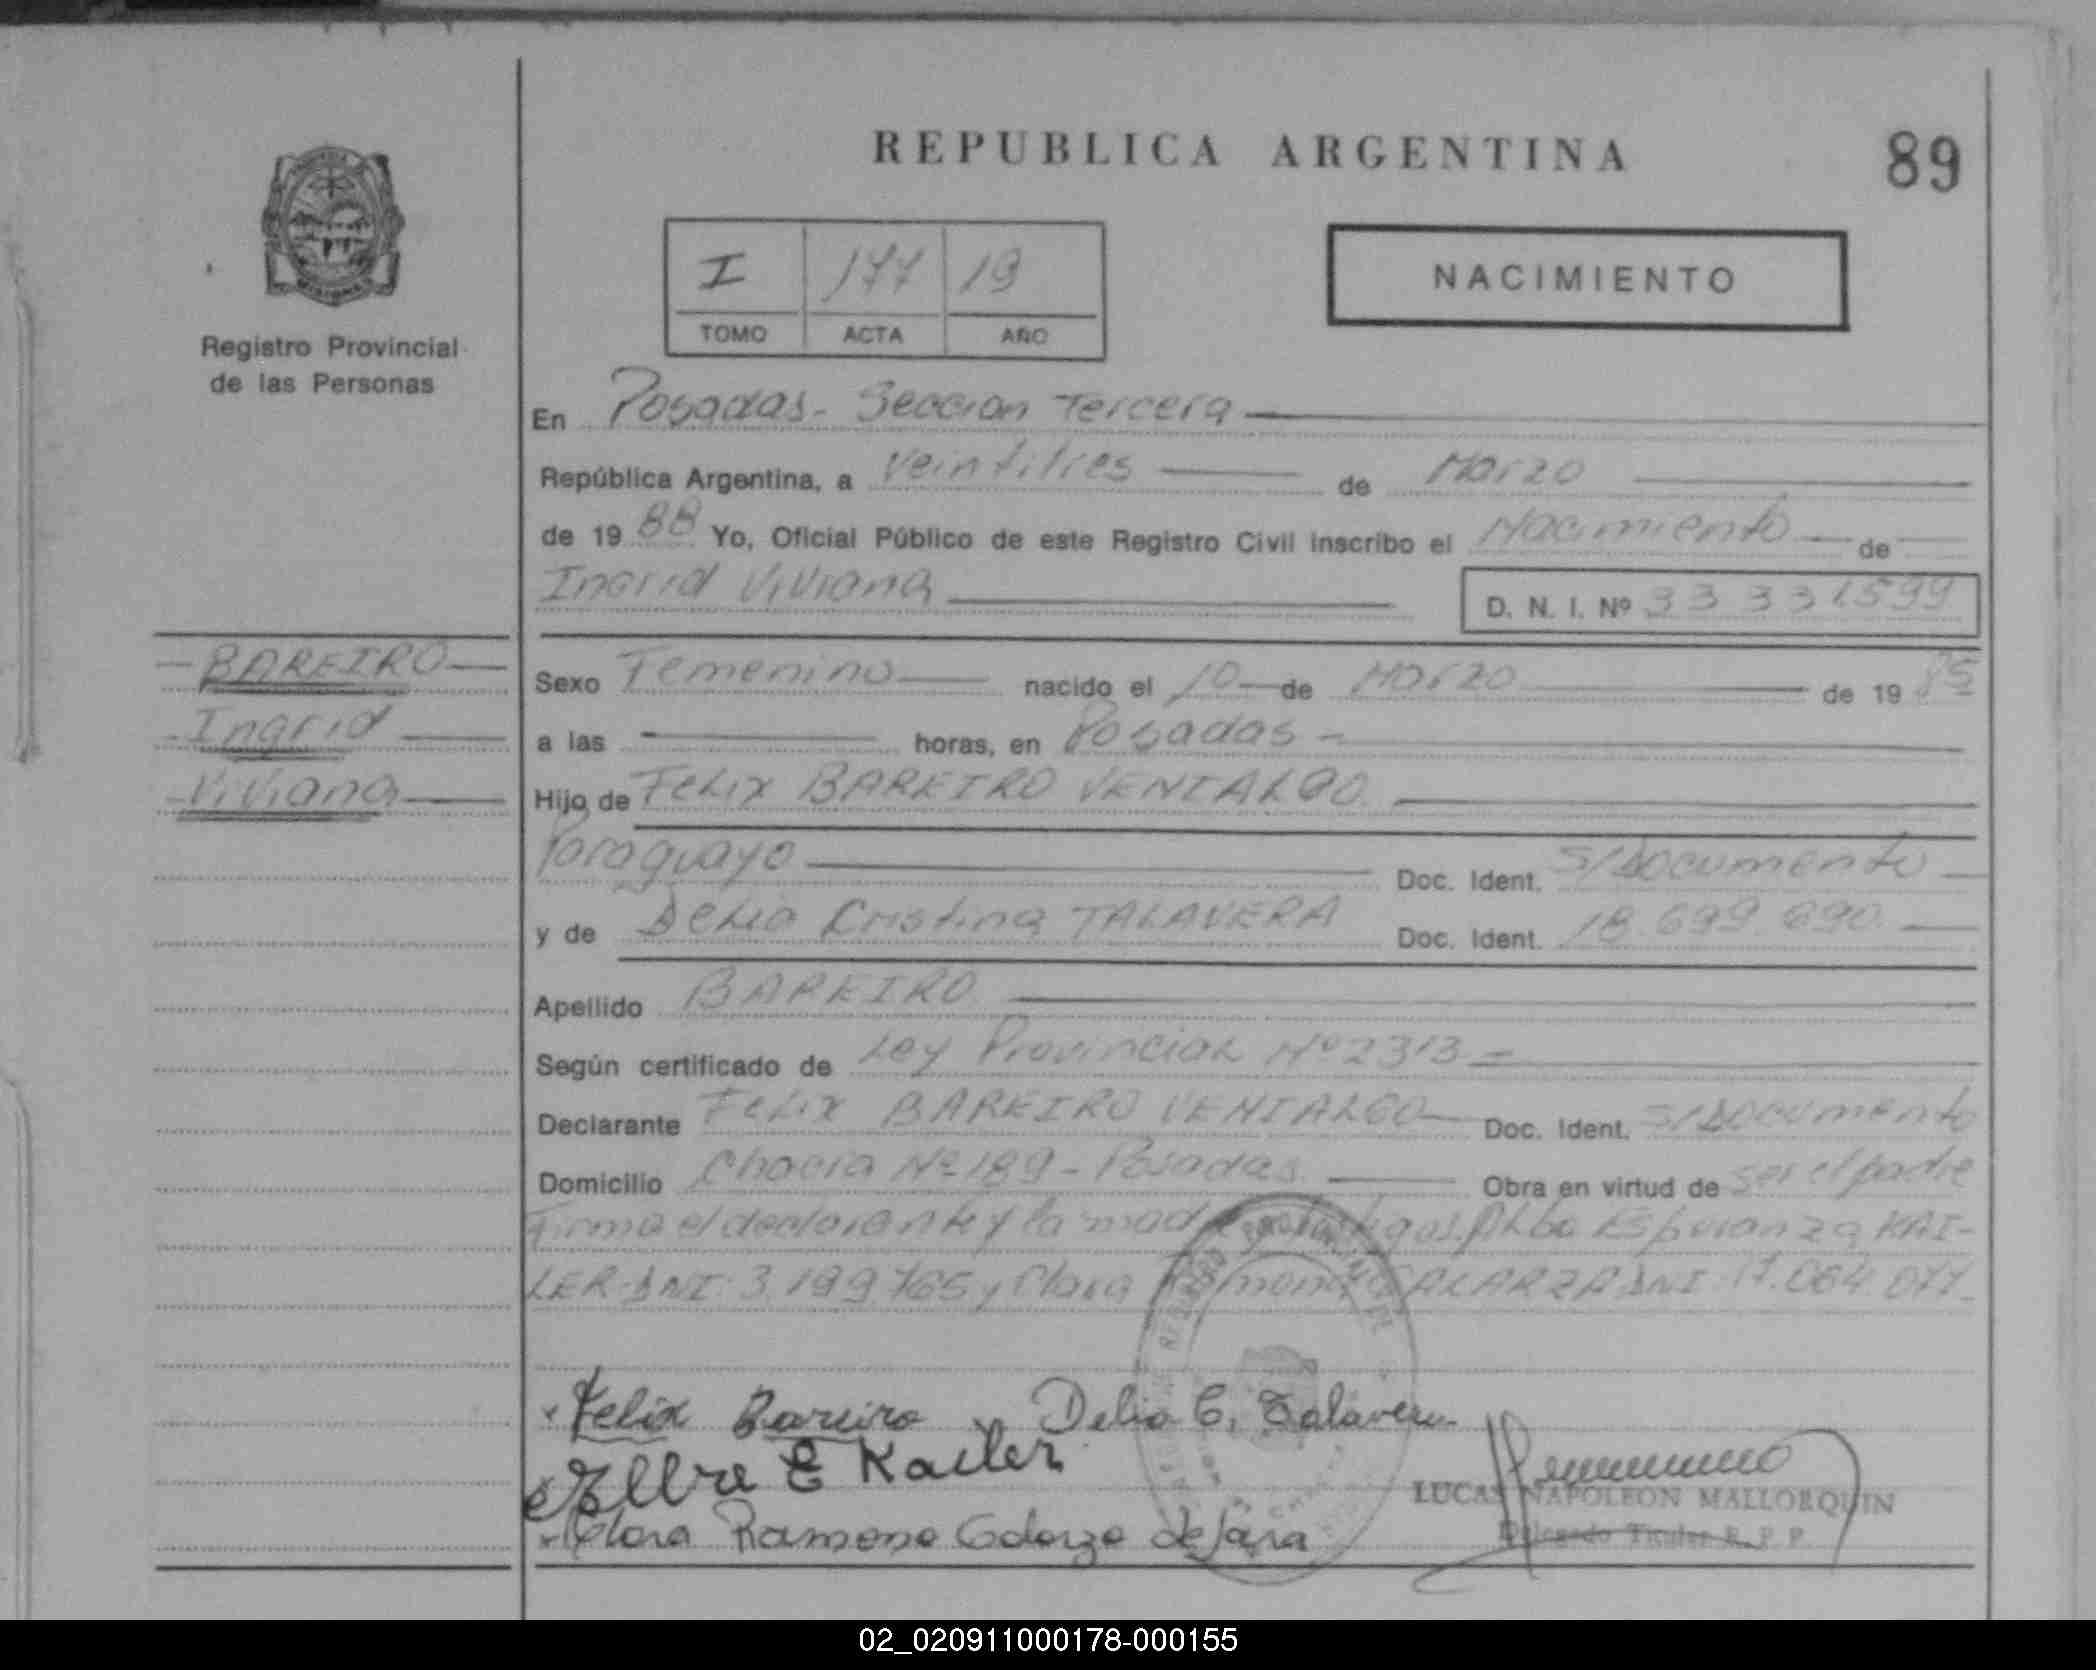 REPUBLICA ARGENTINA
89
I 177 19
TOMO ACTA AÑO
NACIMIENTO
Registro Provincial
de las Personas
En Posadas - Seccion Tercera
República Argentina, a Veintitres de Marzo
de 19 88 Yo, Oficial Público de este Registro Civil inscribo el Nacimiento de
Ingrid Viviana
D. N. I. Nº 33 331599
BAREIRO
Ingrid
Viviana
Sexo Femenino nacido el 10 de Marzo de 19 85
a las horas, en Posadas -
Hijo de Felix BAREIRO VENIALGO
Paraguayo Doc. Ident. S/Documento
y de Delia Cristina TALAVERA Doc. Ident. 18.699.890
Apellido BAREIRO
Según certificado de Ley Provincial Nº 2313 -
Declarante Felix BAREIRO VENIALGO Doc. Ident. S/Documento
Domicilio Chacra Nº 189 - Posadas Obra en virtud de ser el padre
Firma el declarante y la madre testigos. Alba Esperanza KAI-
LER-DNI: 3.199.765 y Clara Ramona GALARZA DNI: 17.064.077-
Felix Bareiro Delia C. Talavera
Elbre E Kailer
Clara Ramona Galarza de Jara
LUCAS NAPOLEON MALLORQUIN
Delegado Titular R. P. P.
02_020911000178-000155